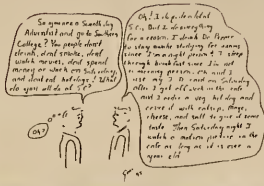 So you are a Seventh Day
Adventist and go to Southern
College? You people don't
drink, don't smoke, don't
watch movies, don't spend
money or work on Saturday,
and don't eat hotdogs! What
do you all do at SC?
Oh! I do go do a lot at
S.C., But I do everything
for a reason. I drink Dr. Pepper
to stay awake studying for exams
since I'm a night person. I sleep
through breakfast since I'm not
a morning person. Oh and I
use my I D card on Saturday
after I get off work in the cafe
and I order a veg hotdog and
cover it with catsup,
cheese, and salt to give it some
taste. Then Saturday night I
watch a motion picture in the
cafe as long as it is over a
year old
Oh?